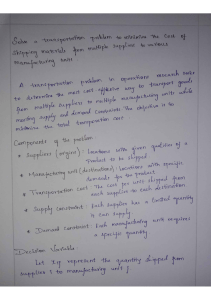 Solve a transportation problem to minimize the cost of
shipping materials from multiple suppliers to various
manufacturing units.
A transportation problem in operations research seeks
to determine the most cost effective way to transport goods
from multiple suppliers to multiple manufacturing units while
meeting supply and demand constraints. The objective is to
minimize the total transportation cost
Components of the problem
* Suppliers (origins): Locations with given quantities of a
Product to be shipped
* Manufacturing unit (destinations): Locations with specific
demands for the product
* Transportation cost: The cost per unit shipped from
each supplier to each destination
* Supply constraint: Each supplier has a limited quantity
it can supply
* Demand constraint: Each manufacturing unit requires
a specific quantity
Decision Variable
Let xij represent the quantity shipped from
supplier i to manufacturing unit j